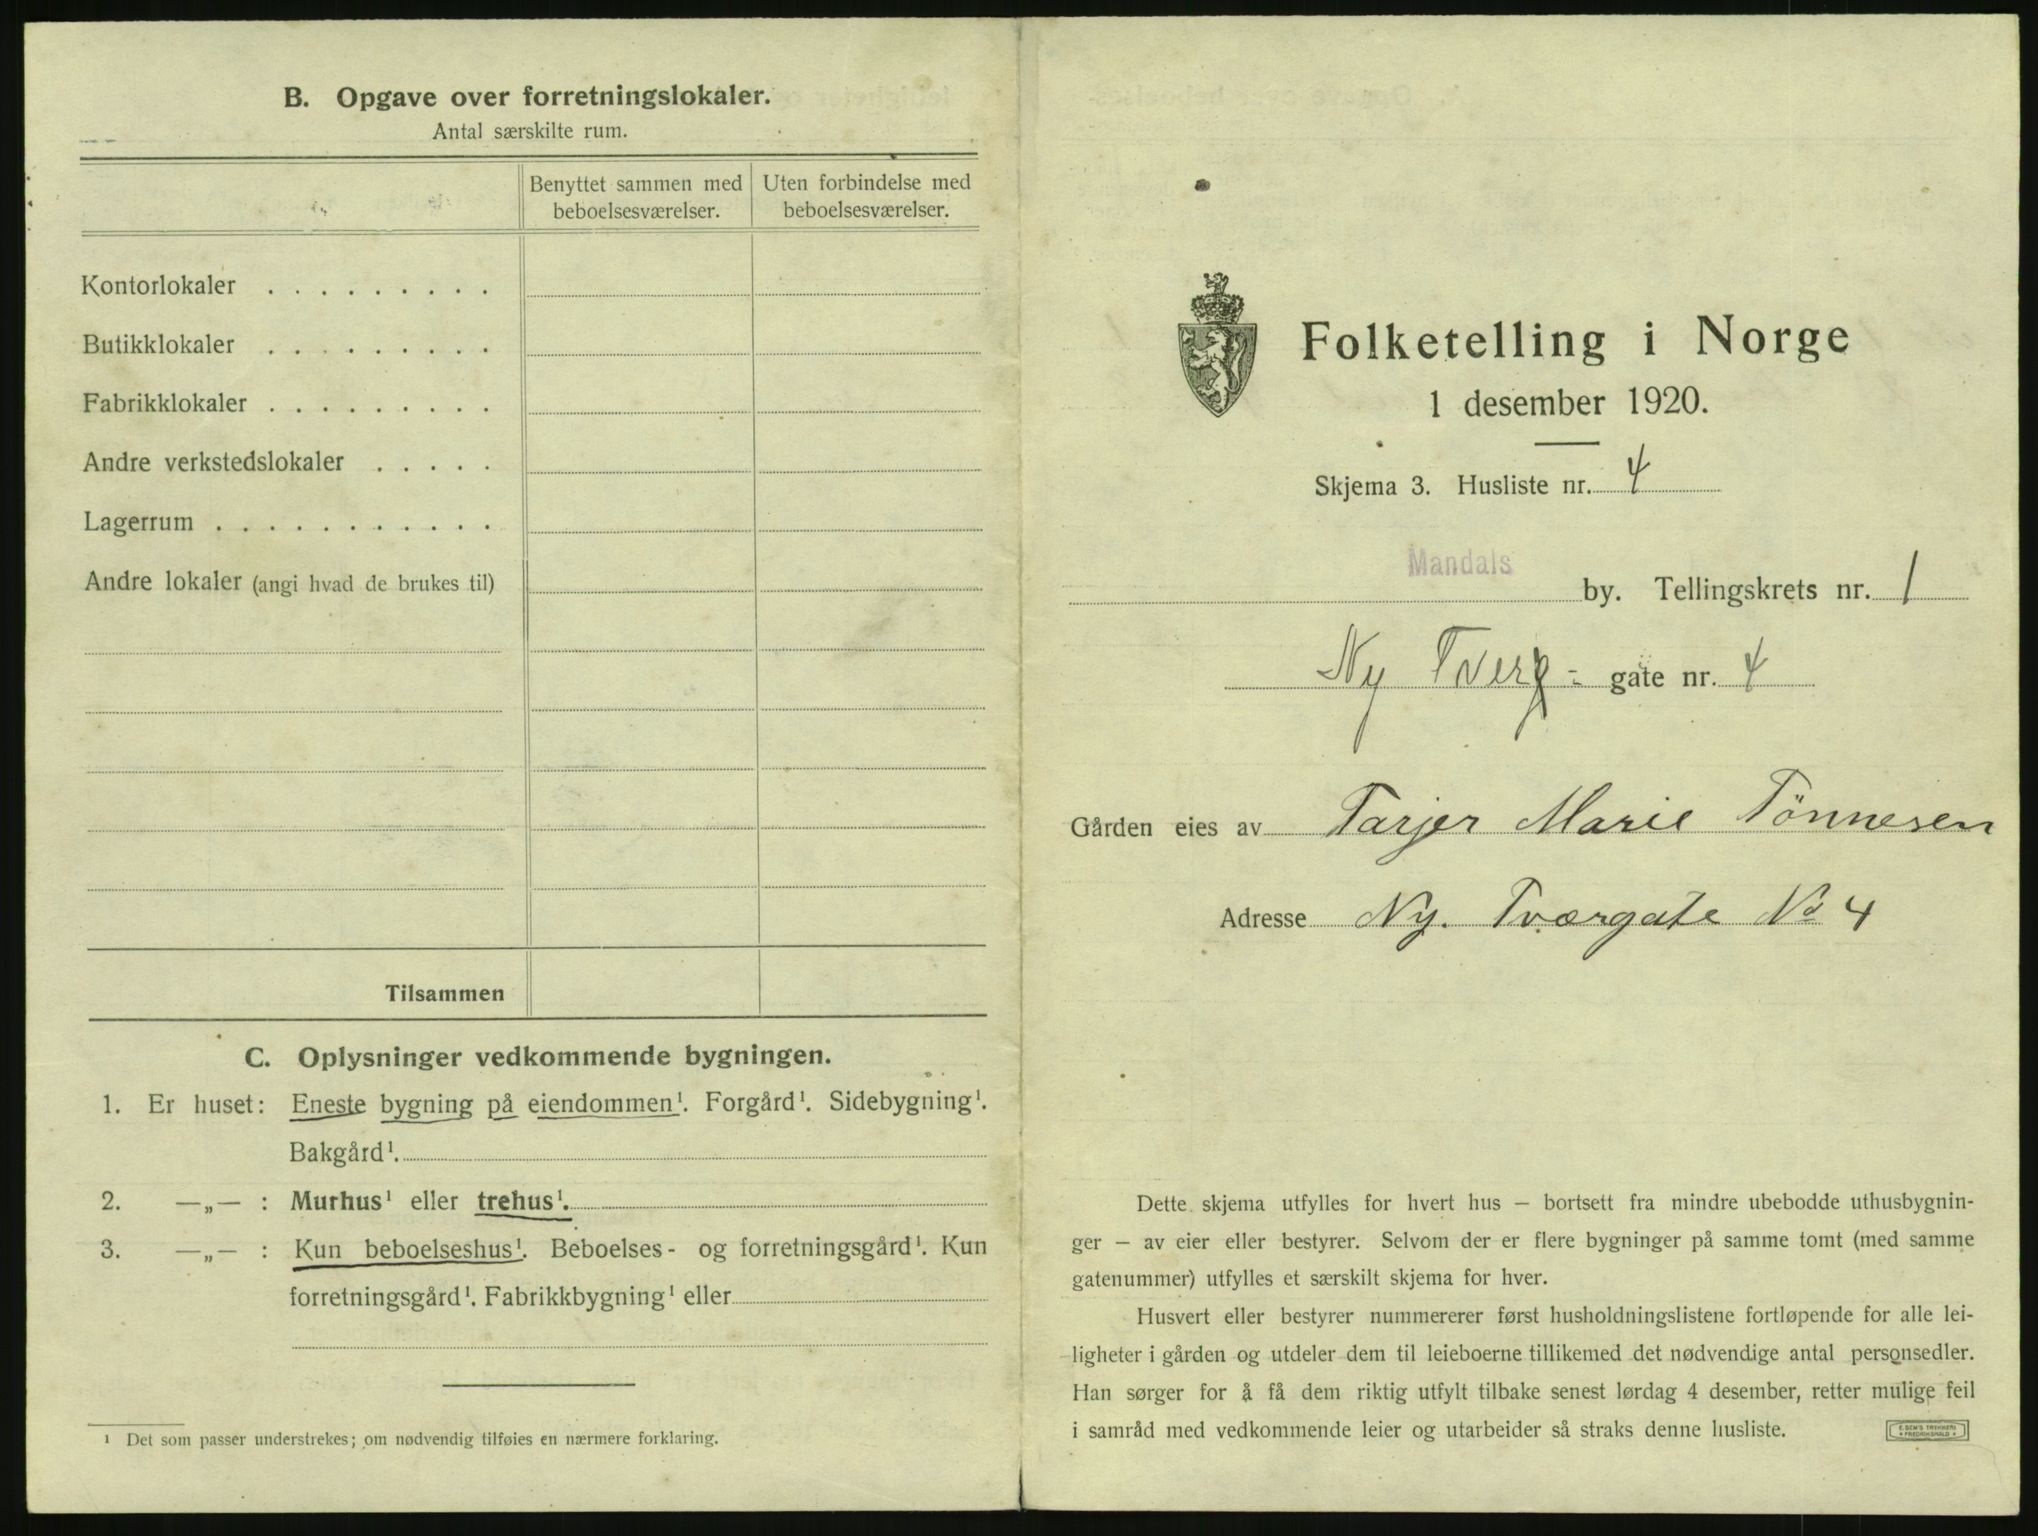 B. Opgave over forretningslokaler.
Antal særskilte rum.
Benyttet sammen med beboelsesværelser.
Uten forbindelse med beboelsesværelser.
Kontorlokaler . . . . . . . . .
Butikklokaler . . . . . . . . .
Fabrikklokaler . . . . . . . . .
Andre verkstedslokaler . . . . .
Lagerrum . . . . . . . . . . .
Andre lokaler (angi hvad de brukes til)
Tilsammen
C. Oplysninger vedkommende bygningen.
1. Er huset: Eneste bygning på eiendommen¹. Forgård¹. Sidebygning¹.
Bakgård¹.
2. —„— : Murhus¹ eller trehus¹.
3. —„— : Kun beboelseshus¹. Beboelses- og forretningsgård¹. Kun
forretningsgård¹. Fabrikkbygning¹ eller
¹ Det som passer understrekes; om nødvendig tilføies en nærmere forklaring.
Folketelling i Norge
1 desember 1920.
Skjema 3. Husliste nr. 4
Mandals by. Tellingskrets nr. 1
Ny Tverg- gate nr. 4
Gården eies av Tarjer Marie Tönnesen
Adresse Ny. Tværgate No 4
Dette skjema utfylles for hvert hus – bortsett fra mindre ubebodde uthusbygnin-
ger – av eier eller bestyrer. Selvom der er flere bygninger på samme tomt (med samme
gatenummer) utfylles et særskilt skjema for hver.
Husvert eller bestyrer nummererer først husholdningslistene fortløpende for alle lei-
ligheter i gården og utdeler dem til leieboerne tillikemed det nødvendige antal personsedler.
Han sørger for å få dem riktig utfylt tilbake senest lørdag 4 desember, retter mulige feil
i samråd med vedkommende leier og utarbeider så straks denne husliste.
E. SEM'S TRYKKERI
FREDRIKSHALD